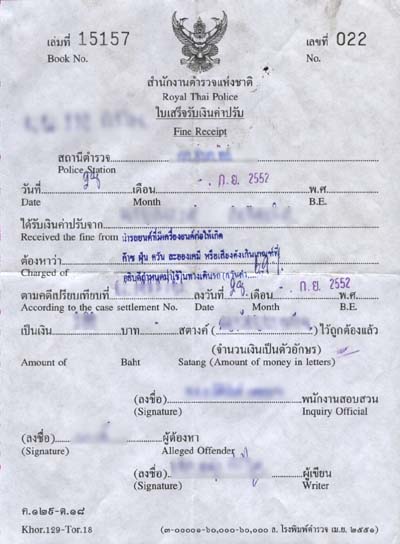 เล่มที่ 15157 เลขที่ 022
Book No. No.
สำนักงานตำรวจแห่งชาติ
Royal Thai Police
ใบเสร็จรับเงินค่าปรับ
Fine Receipt
สถานีตำรวจ
Police Station
วันที่ เดือน - ก.ย. 2552 พ.ศ.
Date Month B.E.
ได้รับเงินค่าปรับจาก
Received the fine from นำรถยนต์ที่มีเครื่องยนต์ก่อให้เกิด
ต้องหาว่า ก๊าซ ฝุ่น ควัน ละอองเคมี หรือเสียงดังเกินเกณฑ์ที่
Charged of
ตามคดีเปรียบเทียบที่ ลงวันที่ เดือน - ก.ย. 2552
According to the case settlement No. Date Month B.E.
เป็นเงิน บาท สตางค์ ( ) ไว้ถูกต้องแล้ว
(จำนวนเงินเป็นตัวอักษร)
Amount of Baht Satang (Amount of money in letters)
(ลงชื่อ) พนักงานสอบสวน
(Signature) Inquiry Official
(ลงชื่อ) ผู้ต้องหา
(Signature) Alleged Offender
(ลงชื่อ) ผู้เขียน
(Signature) Writer
ค.๑๒๙-ต.๑๘
Khor.129-Tor.18 (๓-๐๐๐๐๑-๖๐,๐๐๐-๖๐,๐๐๐ ล. โรงพิมพ์ตำรวจ เม.ย. ๒๕๕๑)